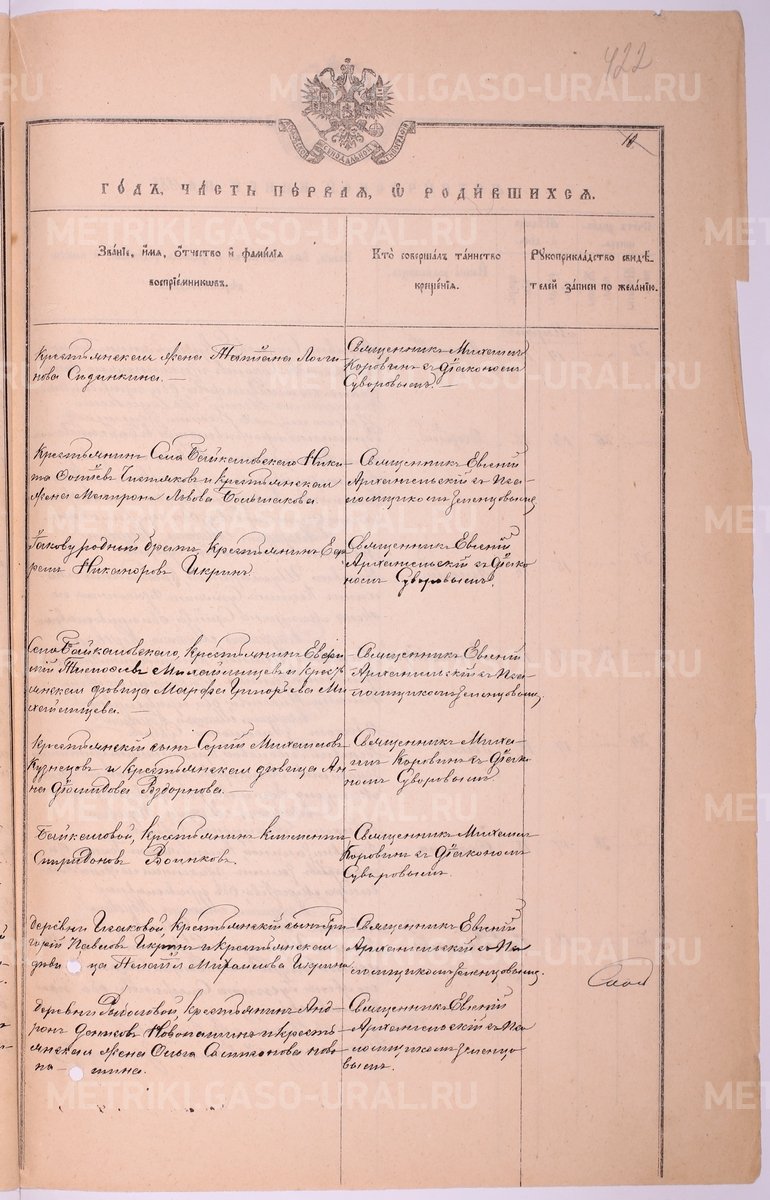 422
10
МОСКОВСКОЙ СѴНОДАЛЬНОЙ ТѴПОГРАФІИ
ГОДЪ, ЧАСТЬ ПЕРВАЯ, Ѡ РОДИВШИХСЯ.
Званіе, имя, отчество и фамилія
воспріемниковъ.
Кто совершалъ таинство
крещенія.
Рукоприкладство свидѣ-
телей записи по желанію.
Крестьянская жена Татіана Логи-
нова Сидинкина. —
Священникъ Михаилъ
Коровинъ съ діакономъ
Суворовымъ. —
Крестьянинъ Села Байкаловскаго Ники-
та Фотіевъ Чистяковъ и крестьянская
жена Матрона Львова Большакова.
Священникъ Евгеній
Архангельскій съ Пса-
ломщикомъ Земенцовымъ
родный братъ, Крестьянинъ Еф-
ремъ Никаноровъ Икринъ.
Священникъ Евгеній
Архангельскій съ діако-
номъ Суворовымъ.
Села Байкаловскаго, Крестьянинъ Евфи-
мій Михайлищевъ и крест-
янская дѣвица Марфа Григорьева Ми-
хайлищева. —
Священникъ Евгеній
Архангельскій съ Пса-
ломщикомъ Земенцовымъ
Крестьянскій сынъ Сергій Михаиловъ
Кузнецовъ и крестьянская дѣвица Ан-
на Вздорнова. —
Священникъ Миха-
илъ Коровинъ съ діако-
номъ Суворовымъ.
Байкаловой, Крестьянинъ Климентъ
Спиридоновъ Воинковъ.
Священникъ Михаилъ
Коровинъ съ діакономъ
Суворовымъ.
Деревни Исаковой, Крестьянскій сынъ Гри-
горій Павловъ Икринъ и крестьянская
дѣви ца Михаилова Икрина
Священникъ Евгеній
Архангельскій съ Пса-
ломщикомъ Земенцовымъ.
Деревни крестьянинъ Анд-
ронъ Денисовъ Новопашинъ и кресть-
янская жена Ольга Новo-
па — шина.
Священникъ Евгеній
Архангельскій съ Пса-
ломщикомъ Земенцо-
вымъ.
METRIKI.GASO-URAL.RU